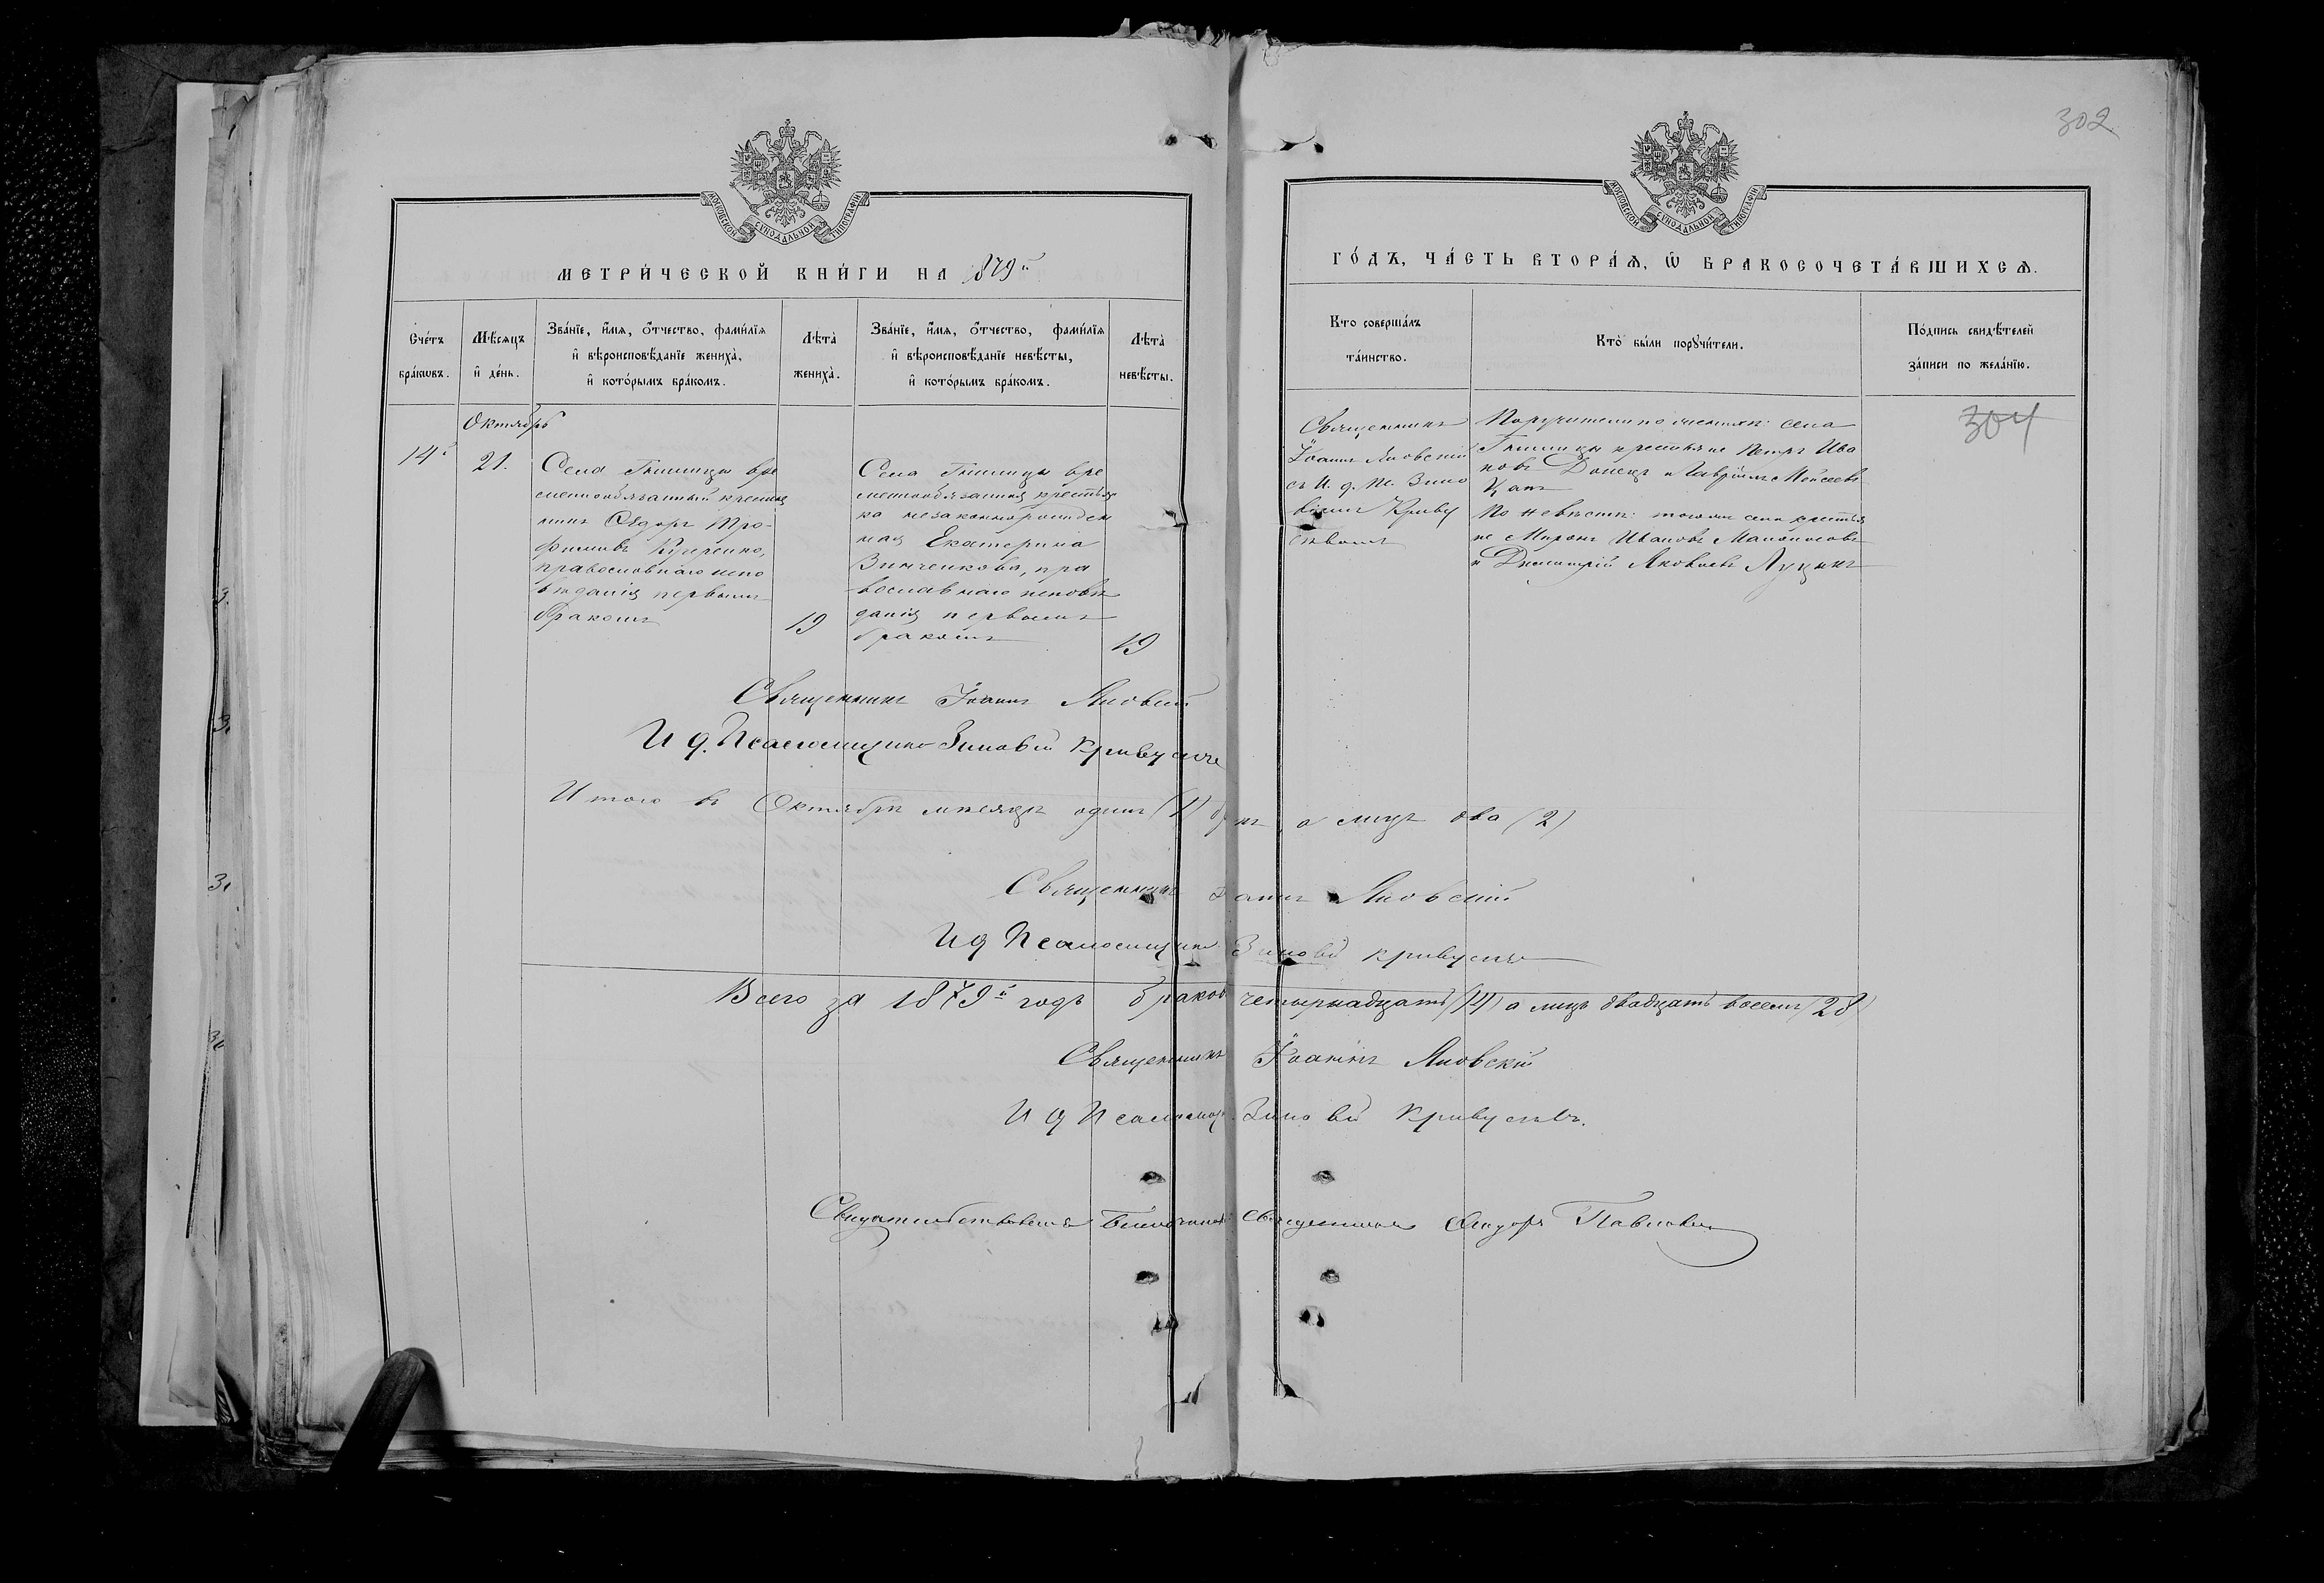 302
МОСКОВСКОЙ СѴНОДАЛЬНОЙ ТИПОГРАФІИ
МОСКОВСКОЙ СѴНОДАЛЬНОЙ ТИПОГРАФІИ
МЕТРИ́ЧЕСКОЙ КНИ́ГИ НА 1879й
ГО́ДЪ, ЧА́СТЬ ВТОРА́Ѧ, Ѡ БРАКОСОЧЕТА́ВШИХСѦ.
Сче́тъ
бра́кѡвъ.
Мѣ́сѧцъ
и҆ де́нь.
Зва́нїе, и҆́мѧ, ѻ҆́тчество, фами́лїѧ
и҆ вѣроисповѣ́данїе жениха̀,
и҆ кото́рымъ бра́комъ.
Лѣта̀
жениха̀.
Зва́нїе, и҆́мѧ, ѻ҆́тчество, фами́лїѧ
и҆ вѣроисповѣ́данїе невѣ́сты,
и҆ кото́рымъ бра́комъ.
Лѣта̀
невѣ́сты.
Кто соверша́лъ
та́инство.
Кто̀ бы́ли порꙋчи́тели.
По́дпись свидѣ́телей
за́писи по жела́нїю.
304
Октябрь
14й
21.
Села Гнилицы вре
меннообязанный крестья
нинъ Ѳедоръ Тро-
фимовъ Кучеренко,
православнаго испо
вѣданія первымъ
бракомъ
19
Села Гнилицы вре
меннообязанная крестьян
ка незаконнорожден
ная Екатерина
Зинченкова, пра
вославнаго исповѣ
данія первымъ
бракомъ
19
Священникъ
Іоаннъ Яновскій
съ И. д. Пс. Зино
віемъ Криву
Поручители по женихѣ: села
Гнилицы крестьяне Петръ Ива
новъ Донецъ и Гавріилъ Моисеевъ
Кацъ
По невѣстѣ: того же села крестья
не Миронъ Ивановъ
и Димитрій Яковлевъ Луценко
Священникъ Іоаннъ Яновскій
И д. Псаломщика Зиновій
Итого въ Октябрѣ мѣсяцѣ одинъ (1) бракъ, а лицъ два (2)
Священникъ Іоаннъ Яновскій
И д Псаломщика Зиновій
Всего за 1879й годъ браковъ четырнадцать (14) а лицъ двадцать восемь (28)
Священникъ Іоаннъ Яновскій
И д Псаломщ. Зиновій
Свидетельствовалъ Благочинный Священникъ Ѳеодоръ Павловъ